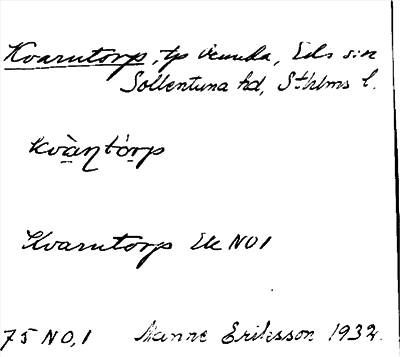 Kvarntorp, tp Vennda, Eds sn
Sollentuna hd, Sthlms l.
kvàṇtórp
Kvarntorp Ek NO1
75 NO,1 Manne Eriksson 1932.